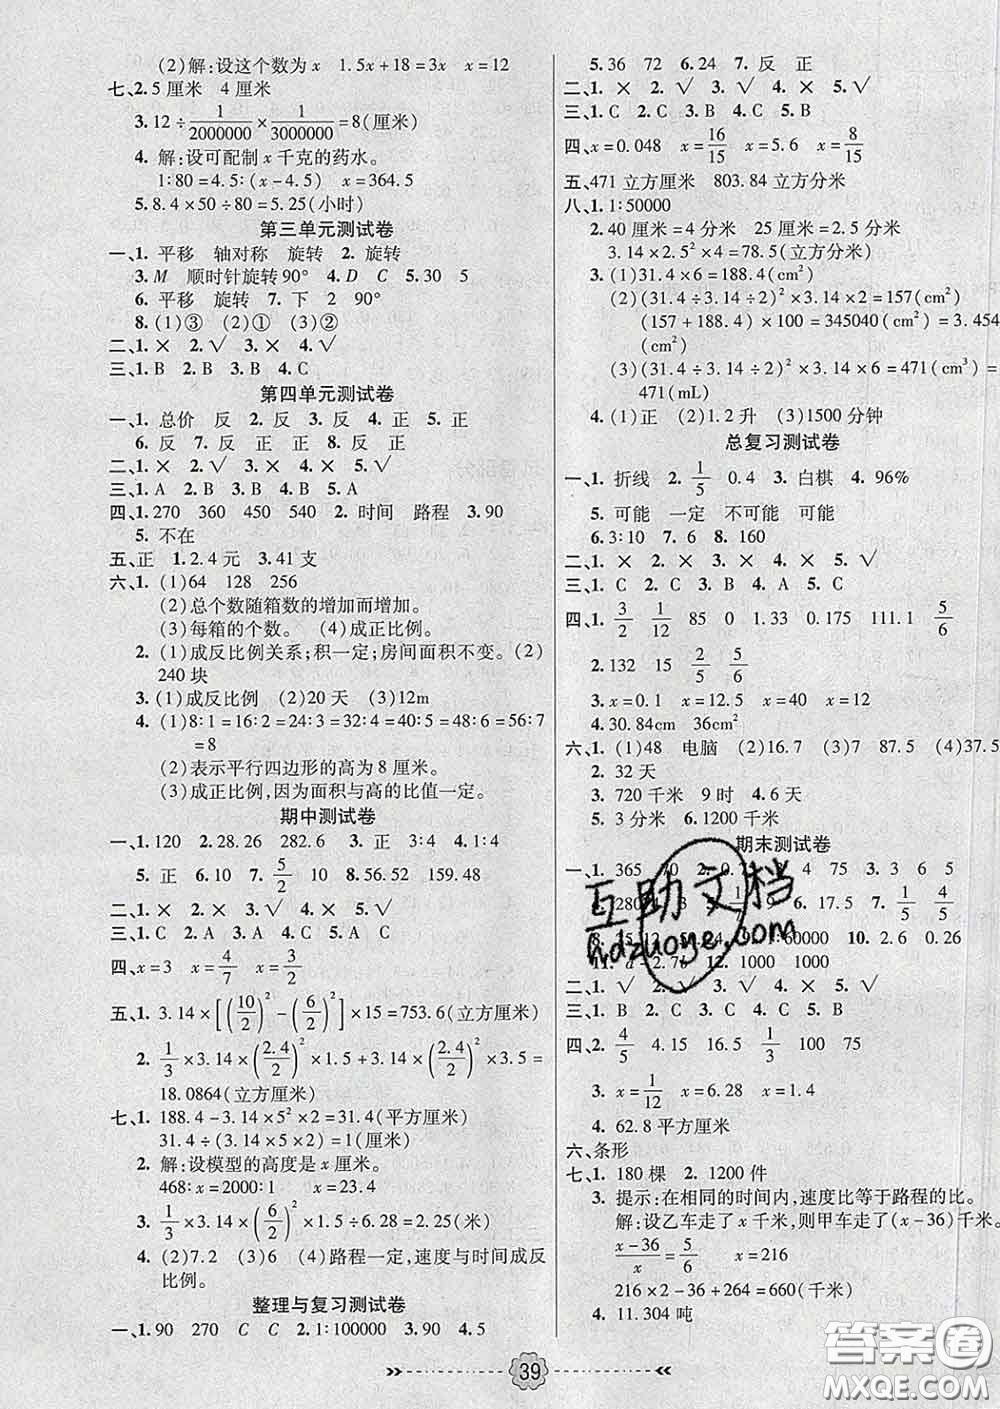 (2)解:设这个数为x 1.5x+18=3x x=12
七、2.5厘米 4厘米
3.12÷1/2000000×1/3000000=8(厘米)
4. 解:设可配制x千克的药水。
1∶80=4.5∶(x-4.5) x=364.5
5.8.4×50÷80=5.25(小时)
第三单元测试卷
一、1. 平移 轴对称 旋转 2. 旋转
3.M 顺时针旋转90° 4.D C 5.30 5
6. 平移 旋转 7. 下 2 90°
8.(1)③ (2)① (3)②
二、1.× 2.√ 3.× 4.√
三、1.B 2.B 3.B 4.C
第四单元测试卷
一、1. 总价 反 2. 反 3. 反 4. 正 5. 正
6. 反 7. 反 正 正 8. 反
二、1.√ 2.× 3.× 4.√ 5.×
三、1.A 2.B 3.B 4.B 5.A
四、1.270 360 450 540 2. 时间 路程 3.90
5. 不在
五、正 1.2.4元 3.41支
六、1.(1)64 128 256
(2)总个数随箱数的增加而增加。
(3)每箱的个数。 (4)成正比例。
2.(1)成反比例关系;积一定;房间面积不变。(2)
240块
3.(1)成反比例 (2)20天 (3)12m
4.(1)8∶1=16∶2=24∶3=32∶4=40∶5=48∶6=56∶7
=8
(2)表示平行四边形的高为8厘米。
(3)成正比例,因为面积与高的比值一定。
期中测试卷
一、1.120 2.28.26 282.6 3. 正 3∶4 4.1∶4
5. 正 6.10 7. 5/2 10 8.56.52 159.48
二、1.× 2.√ 3.× 4.√ 5.×
三、1.C 2.A 3.A 4.C 5.A
四、x=3 x=4/7 x=3/2
五、1.3.14×[(10/2)²-(6/2)²]×15=753.6(立方厘米)
2. 1/3×3.14×(2.4/2)²×1.5+3.14×(2.4/2)²×3.5=
18.0864(立方厘米)
七、1.188.4-3.14×5²×2=31.4(平方厘米)
31.4÷(3.14×5×2)=1(厘米)
2. 解:设模型的高度是x厘米。
468∶x=2000∶1 x=23.4
3. 1/3×3.14×(6/2)²×1.5÷6.28=2.25(米)
4. (2)7.2 (3)6 (4)路程一定,速度与时间成反
比例。
整理与复习测试卷
一、1.90 270 C C 2.1∶100000 3.90 4.5
5.36 72 6.24 7. 反 正
二、1.× 2.√ 3.√ 4.× 5.√
三、1.C 2.C 3.B 4.C 5.B
四、x=0.048 x=16/15 x=5.6 x=8/15
五、471立方厘米 803.84立方分米
八、1.1∶50000
2.40厘米=4分米 25厘米=2.5分米
3.14×2.5²×4=78.5(立方分米)
3.(1)31.4×6=188.4(cm²)
(2)(31.4÷3.14÷2)²×3.14×2=157(cm²)
(157+188.4)×100=345040(cm²)=3.454
(m²)
(3)(31.4÷3.14÷2)²×3.14×6=471(cm³)=
471(mL)
4.(1)正 (2)1.2升 (3)1500分钟
总复习测试卷
一、1. 折线 2. 1/5 0.4 3. 白棋 4. 96%
5. 可能 一定 不可能 可能
6.3∶10 7.6 8.160
二、1.× 2.× 3.× 4.× 5.√
三、1.C 2.C 3.B 4.A 5.C
四、1. 3/2 1/12 85 0 1.33 0.175 111.1 5/6
2.132 15 2/5 5/6
3.x=0.1 x=12.5 x=40 x=12
4.30.84cm 36cm²
六、1.(1)48 电脑 (2)16.7 (3)7 87.5 (4)37.5
2. 32天
3. 720千米 9时 4.6天
5. 3分米 6.1200千米
期末测试卷
一、1. 365 70 4 75 3.3 6 5
6.17.5 7. 1/5 4/5
1∶60000 10. 2.6 0.26
12.1000 1000
二、1.√ 2.√ 3.√ 4.× 5.√
三、1.B 2.C 3.C 4.C 5.B
四、2. 4/5 4.15 16.5 1/3 100 75
3. x=1/12 x=6.28 x=1.4
4. 62.8平方厘米
六、条形
七、1.180棵 2. 1200件
3. 提示:在相同的时间内,速度比等于路程的比。
解:设乙车走了x千米,则甲车走了(x-36)千米。
x-36/x=5/6 x=216
216×2-36+264=660(千米)
4. 11.304吨
互助文档
hdzuoye.com
39
答案圈
MXQE.COM